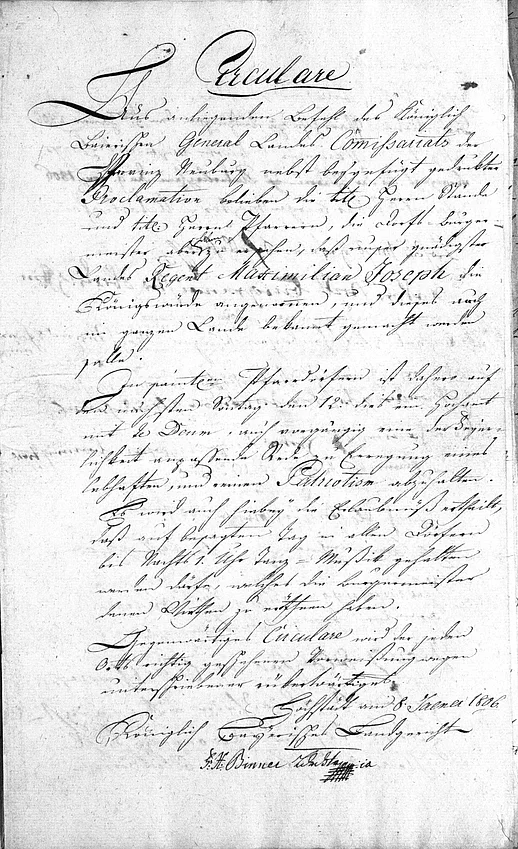 Circulare
Aus anliegenden Befehl des Königlich
Baierischen General Landes Comissariats der
Provinz Neuburg nebst beygefügt gedrukten
Proclamation belieben die titl Herrn Stände
und titl Herrn Pfarrern, die Dorfs Burger-
meister aber zu ersehen, daß unser gnädigster
Landes Regent Maximilian Joseph die
Königswürde angenommen und dieses auch
im ganzen Lande bekannt gemacht werden
solle.
In Pfarrdörfern ist daher auf
den nächsten Sontag den 12. dieß ein Hochamt
mit Te Deum nach vorgängig eine der Feyer-
lichkeit anpassende Rede zu Erregung eines
lebhaften und reinen Patriotism abzuhalten.
Es wird auch hiebey die Erlaubniß ertheilt,
daß auf besagten Tag in allen Dörfern
bis Nachts 1. Uhr Tanz-Musik gehalten
werden dürfe, welches die Burgermeister
denen Wirthen zu eröffnen haben.
Gegenwärtiges Circulare wird der jeden
Orts richtig geschehenen Vorweisung wegen
unterschriebener
Höchstätt am 8 Jaener 1806
Königlich Bayerisches Landgericht
Binner